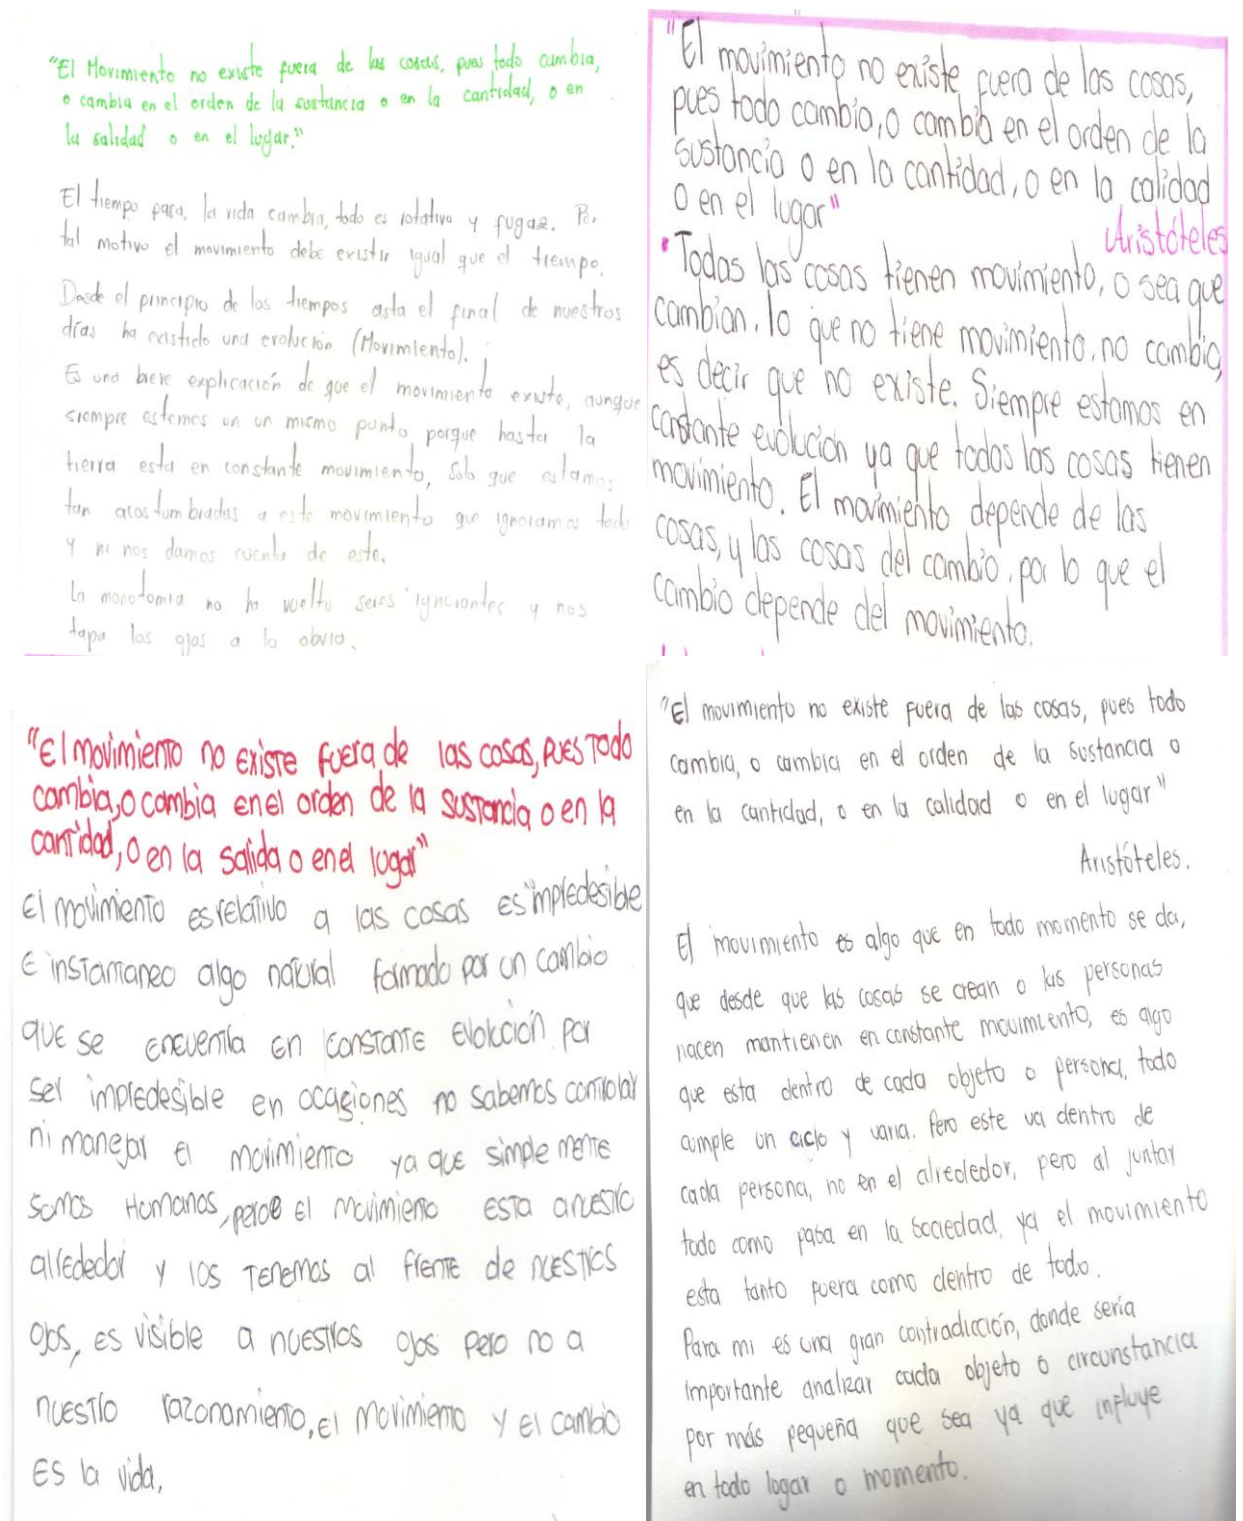 "El Movimiento no existe fuera de las cosas, pues todo cambia,
o cambia en el orden de la sustancia o en la cantidad, o en
la salidad o en el lugar."
El tiempo pasa, la vida cambia, todo es rotativo y fugaz. Por
tal motivo el movimiento debe existir igual que el tiempo.
Desde el principio de los tiempos asta el final de nuestros
días ha existido una evolución (Movimiento).
Es una breve explicación de que el movimiento existe, aunque
siempre estemos en un mismo punto, porque hasta la
tierra esta en constante movimiento, solo que estamos
tan acostumbradas a este movimiento que ignoramos todo
y ni nos damos cuenta de este.
La monotomia no ha vuelto seres ignorantes y nos
tapa los ojos a lo obvio.
"El movimiento no existe fuera de las cosas,
pues todo cambio, o cambia en el orden de la
sustancia o en la cantidad, o en la calidad
o en el lugar"
Aristóteles
• Todas las cosas tienen movimiento, o sea que
cambian, lo que no tiene movimiento, no cambia,
es decir que no existe. Siempre estamos en
constante evolución ya que todas las cosas tienen
movimiento. El movimiento depende de las
cosas, y las cosas del cambio, por lo que el
cambio depende del movimiento.
"El movimiento no existe fuera de las cosas, pues todo
cambia, o cambia en el orden de la sustancia o en la
cantidad, o en la salida o en el lugar"
El movimiento es relativo a las cosas es impredesible
E instantaneo algo natural formado por un cambio
que se encuentra en constante evolución por
ser impredesible en ocagiones no sabemos controlar
ni manejar el movimiento ya que simple mente
somos Humanos, pero el movimiento esta a nuestro
alrededor y los tenemos al frente de nuestros
ojos, es visible a nuestros ojos pero no a
nuestro razonamiento, el movimiento y el cambio
es la vida.
"El movimiento no existe fuera de las cosas, pues todo
cambia, o cambia en el orden de la sustancia o
en la cantidad, o en la calidad o en el lugar"
Aristóteles.
El movimiento es algo que en todo momento se da,
que desde que las cosas se crean o las personas
nacen mantienen en constante movimiento, es algo
que esta dentro de cada objeto o persona, todo
cumple un ciclo y varia. Pero este va dentro de
cada persona, no en el alrededor, pero al juntar
todo como pasa en la sociedad, ya el movimiento
esta tanto fuera como dentro de todo.
Para mi es una gran contradicción, donde sería
importante analizar cada objeto o circunstancia
por más pequeña que sea ya que influye
en todo lugar o momento.